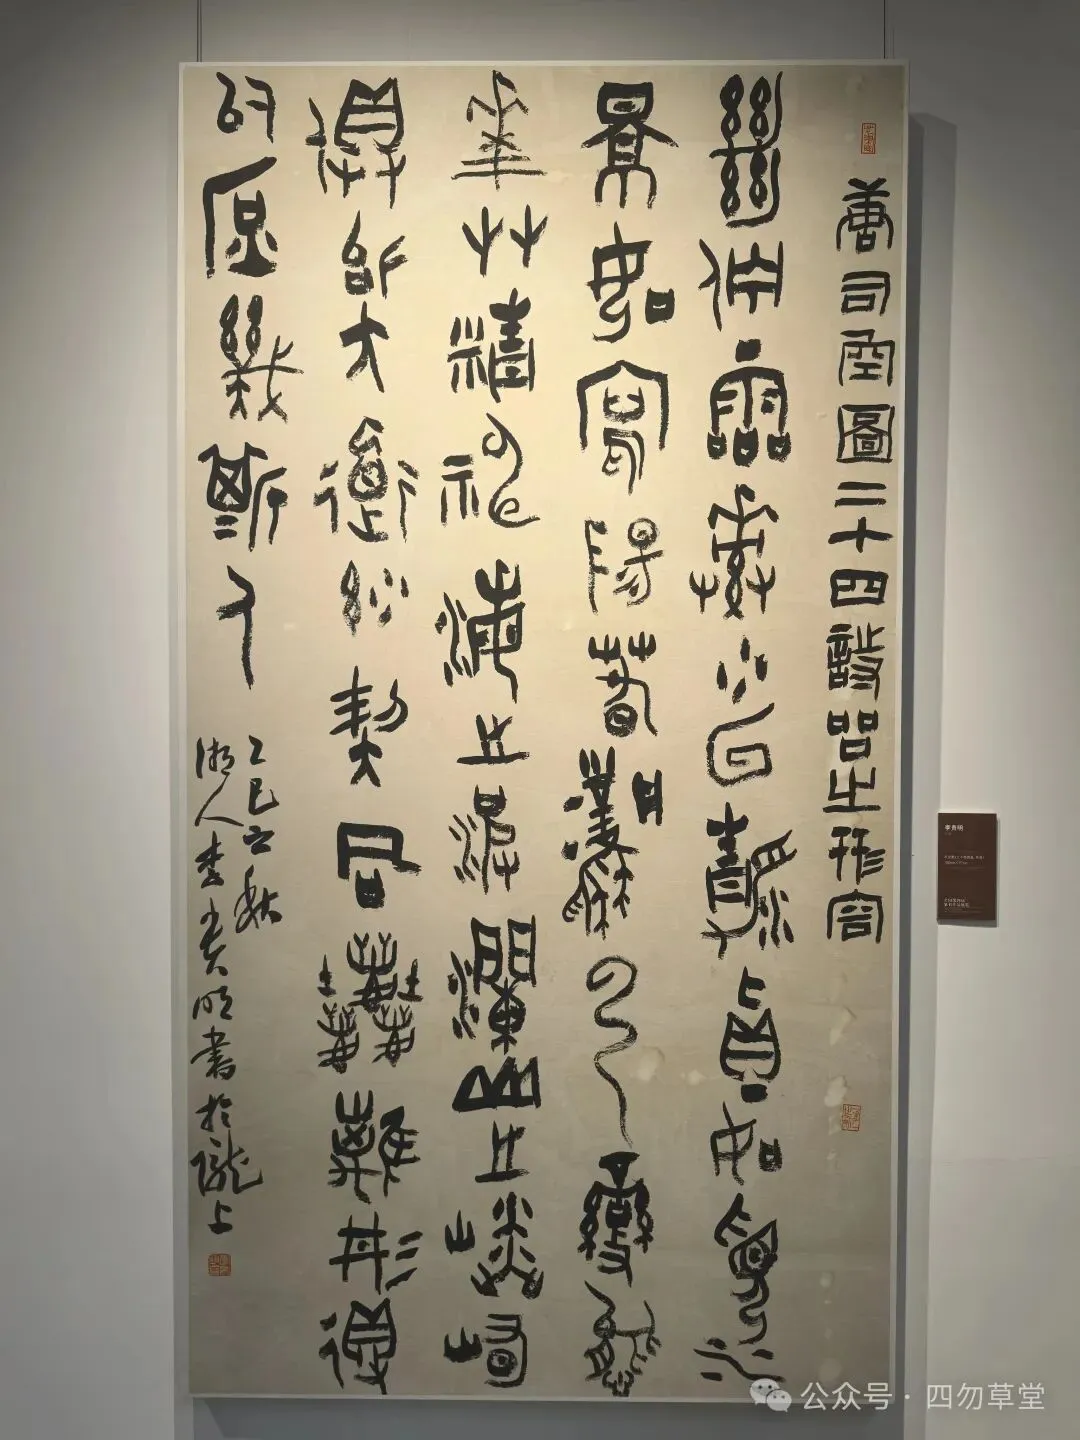 唐司空圖二十四詩品之形容
絕佇靈素少回清真如覓水
景如寫陽春風雲變態
華艸精神海之波瀾山之嶙峋
俱似大道妙契同塵離形得
似庶幾斯人
乙巳之秋
湘人李貴明書於隴上
李贵明
公众号·四勿草堂